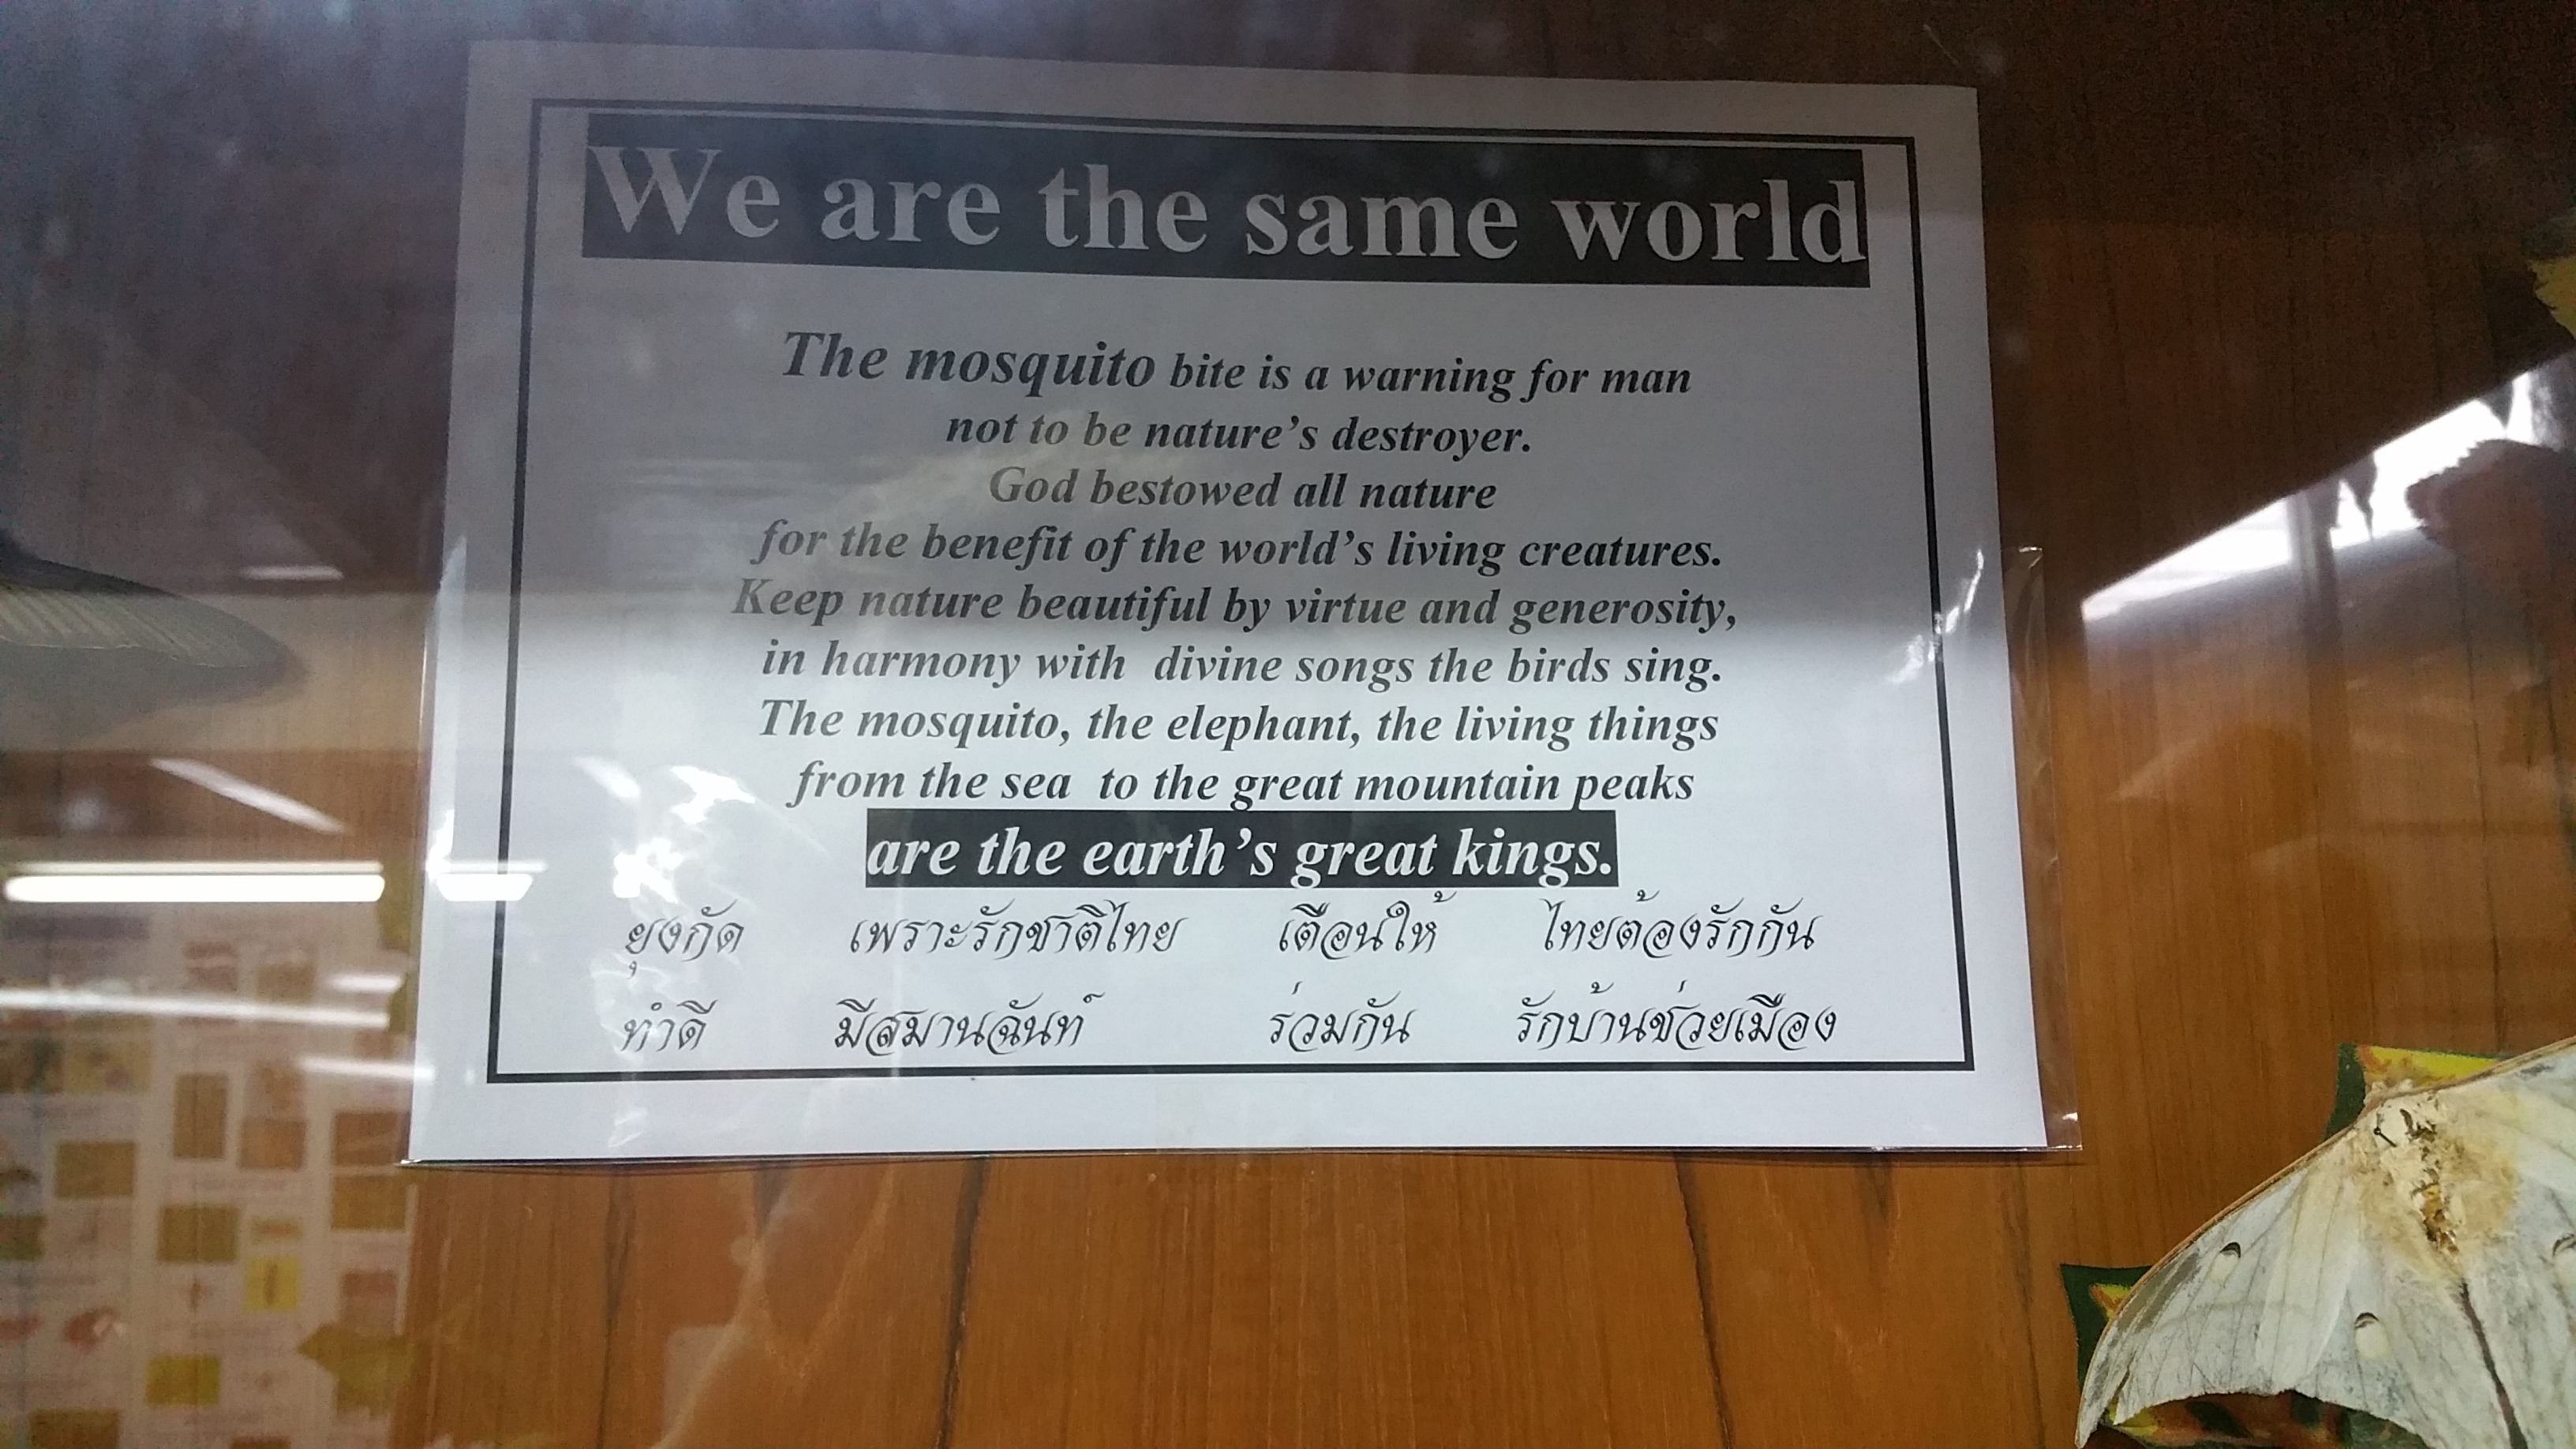 We are the same world
The mosquito bite is a warning for man
not to be nature's destroyer.
God bestowed all nature
for the benefit of the world's living creatures.
Keep nature beautiful by virtue and generosity,
in harmony with divine songs the birds sing.
The mosquito, the elephant, the living things
from the sea to the great mountain peaks
are the earth's great kings.
ยุงกัด เพราะรักชาติไทย เตือนให้ ไทยต้องรักกัน
ทำดี มีสมานฉันท์ ร่วมกัน รักบ้านช่วยเมือง